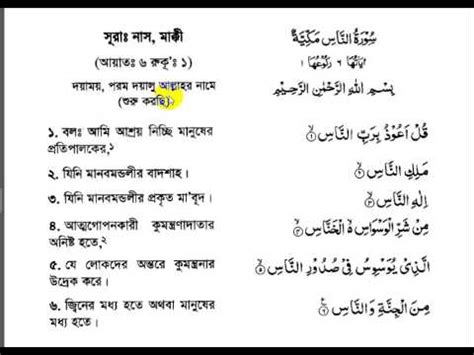 সূরাঃ নাস, মাক্কী
سُوْرَةُ النَّاسِ مَكِّيَّةٌ
(আয়াতঃ ৬ রুকূ'ঃ ১)
اٰيَاتُهَا ٦ رُكُوْعُهَا ١
দয়াময়, পরম দয়ালু আল্লাহর নামে
(শুরু করছি)।
بِسْمِ اللّٰهِ الرَّحْمٰنِ الرَّحِيْمِ
১. বলঃ আমি আশ্রয় নিচ্ছি মানুষের
প্রতিপালকের,১
قُلْ اَعُوْذُ بِرَبِّ النَّاسِ ۙ﴿١﴾
২. যিনি মানবমন্ডলীর বাদশাহ।
مَلِكِ النَّاسِ ۙ﴿٢﴾
৩. যিনি মানবমন্ডলীর প্রকৃত মা'বূদ।
اِلٰهِ النَّاسِ ۙ﴿٣﴾
৪. আত্মগোপনকারী কুমন্ত্রণাদাতার
অনিষ্ট হতে,২
مِنْ شَرِّ الْوَسْوَاسِ ۙ الْخَنَّاسِ ۙ﴿٤﴾
৫. যে লোকদের অন্তরে কুমন্ত্রনার
উদ্রেক করে।
الَّذِيْ يُوَسْوِسُ فِيْ صُدُوْرِ النَّاسِ ۙ﴿٥﴾
৬. জ্বিনের মধ্য হতে অথবা মানুষের
মধ্য হতে।
مِنَ الْجِنَّةِ وَالنَّاسِ ﴿٦﴾